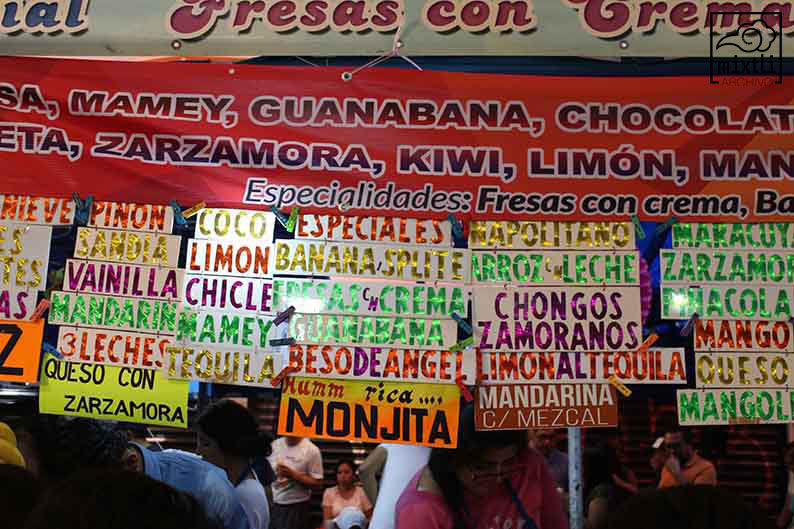 Fresas con Crema
mixtli
ARCHIVO
SA, MAMEY, GUANABANA, CHOCOLAT
ETA, ZARZAMORA, KIWI, LIMÓN, MAN
Especialidades: Fresas con crema, Ba
NIEVE
PIÑON
SANDIA
VAINILLA
MANDARIN
3LECHES
QUESO CON
ZARZAMORA
COCO
LIMON
CHICLE
MAMEY
TEQUILA
ESPECIALES
BANANA SPLITE
FRESAS C/N CREMA
GUANABANA
BESO DE ANGEL
Humm rica....
MONJITA
NAPOLITANO
ARROZ C/N LECHE
CHONGOS
ZAMORANOS
LIMON AL TEQUILA
MANDARINA
C/ MEZCAL
MARACUY
ZARZAMOR
PIÑACOLA
MANGO
QUESO
MANGO